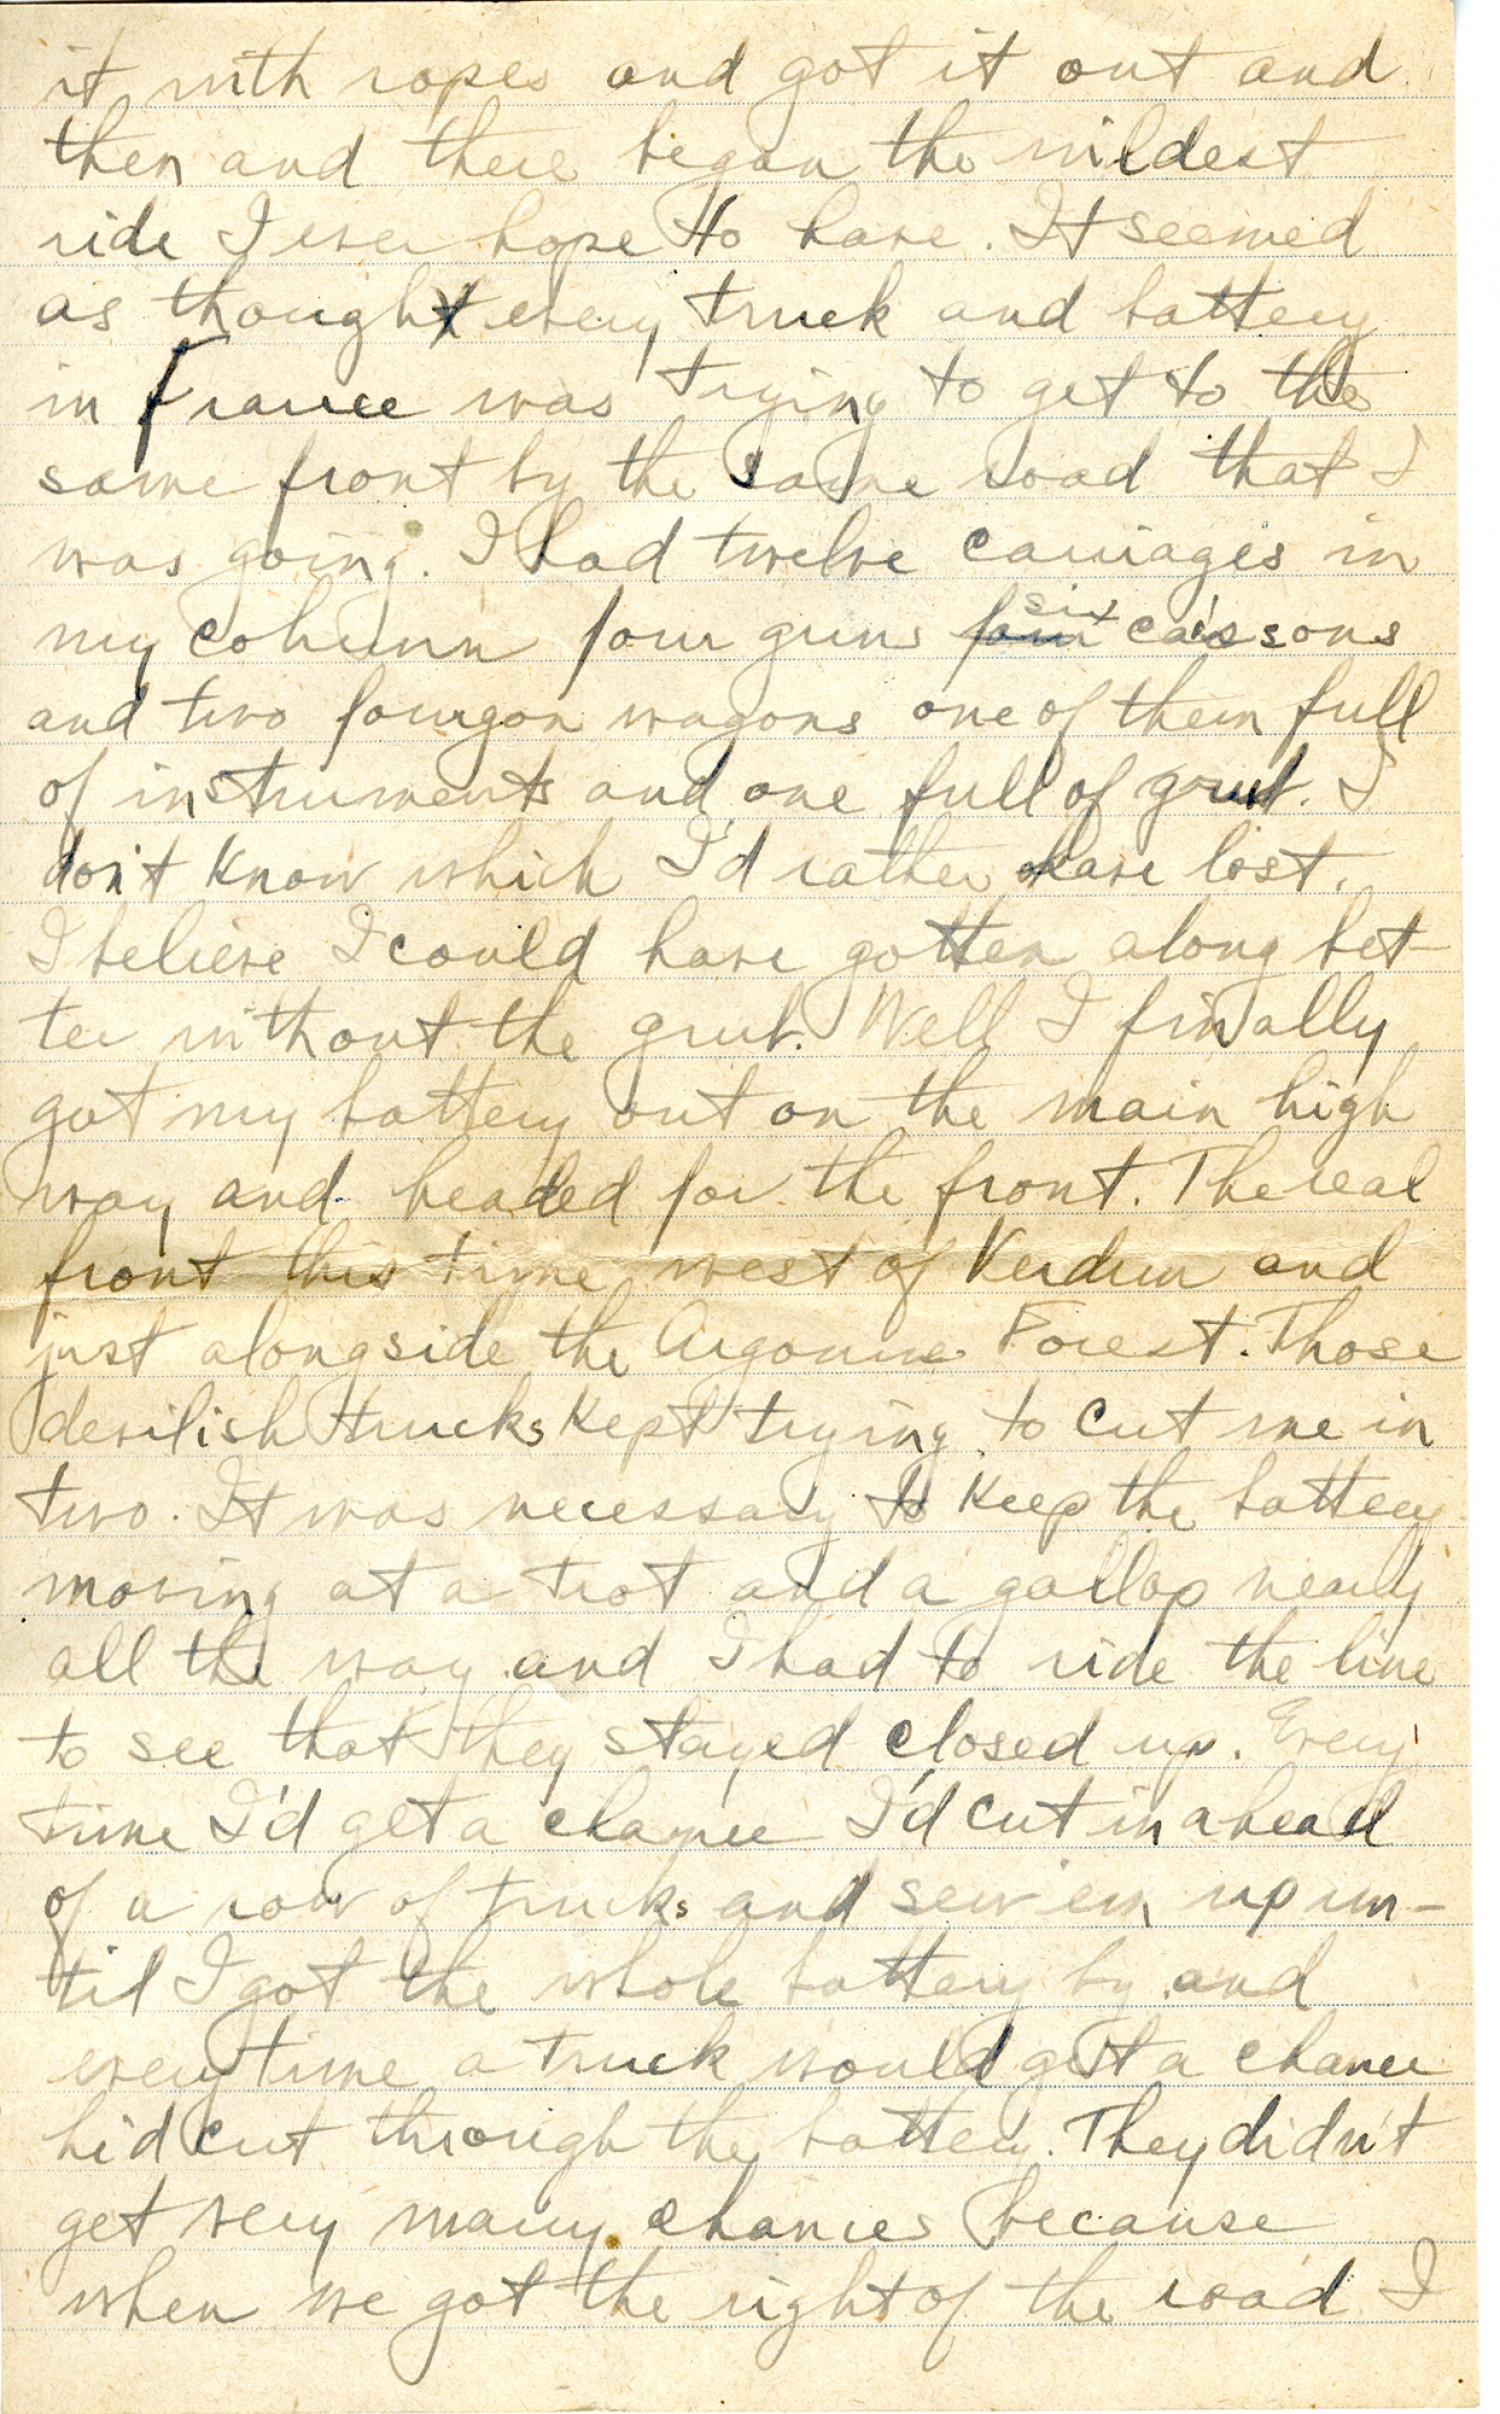 it with ropes and got it out and
then and there began the wildest
ride I ever hope to have. It seemed
as thought every truck and battery
in France was trying to get to the
same front by the same road that I
was going. I had twelve carriages in
my column four guns four six caissons
and two fourgon wagons one of them full
of instruments and one full of grub. I
don't know which I'd rather have lost.
I believe I could have gotten along bet-
ter without the grub. Well I finally
got my battery out on the main high
way and headed for the front. The real
front this time west of Verdun and
just alongside the Argonne Forest. Those
devilish trucks kept trying to cut me in
two. It was necessary to keep the battery
moving at a trot and a gallop nearly
all the way and I had to ride the line
to see that they stayed closed up. Every
time I'd get a chance I'd cut in ahead
of a row of trucks and sew'em up un-
til I got the whole battery by and
every time a truck would get a chance
he'd cut through the battery. They didn't
get very many chances because
when we got the right of the road I